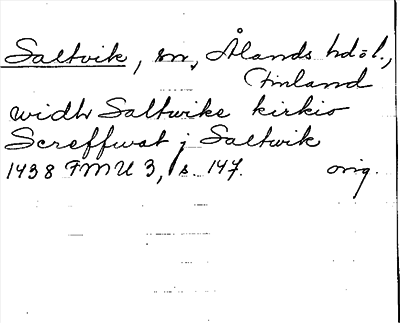 Saltvik, sn, Ålands hd o l.,
Finland
widh Saltwike kirkio
Screffwat j Saltwik
1438 FMU 3, s. 147. orig.